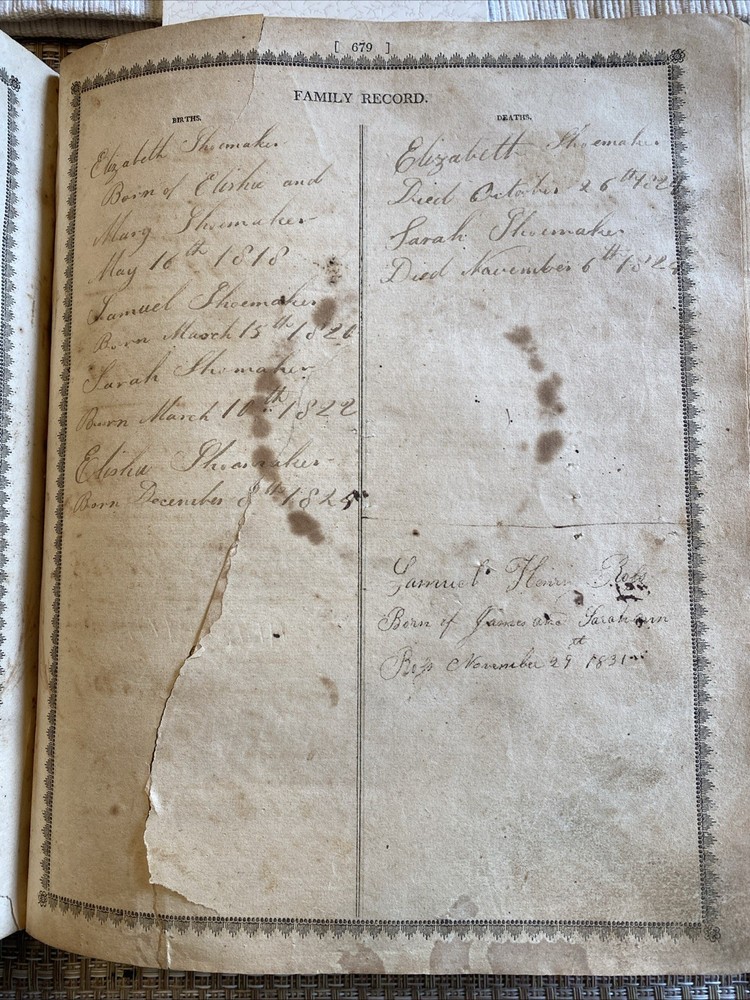 [ 679 ]
FAMILY RECORD.
BIRTHS.
Elizabeth Shoemaker
Born of Elisha and
Mary Shoemaker
May 16th 1818
Samuel Shoemaker
Born March 15th 1820
Sarah Shomaker
Born March 10th 1822
Elisha Shoemaker
Born December 8th 1825
DEATHS.
Elizabeth Shoemaker
Died October 26th
Sarah Shoemaker
Died November 6th
Samuel Henry Ross
Born of James and Sarah ann
Ross November 29th 1831